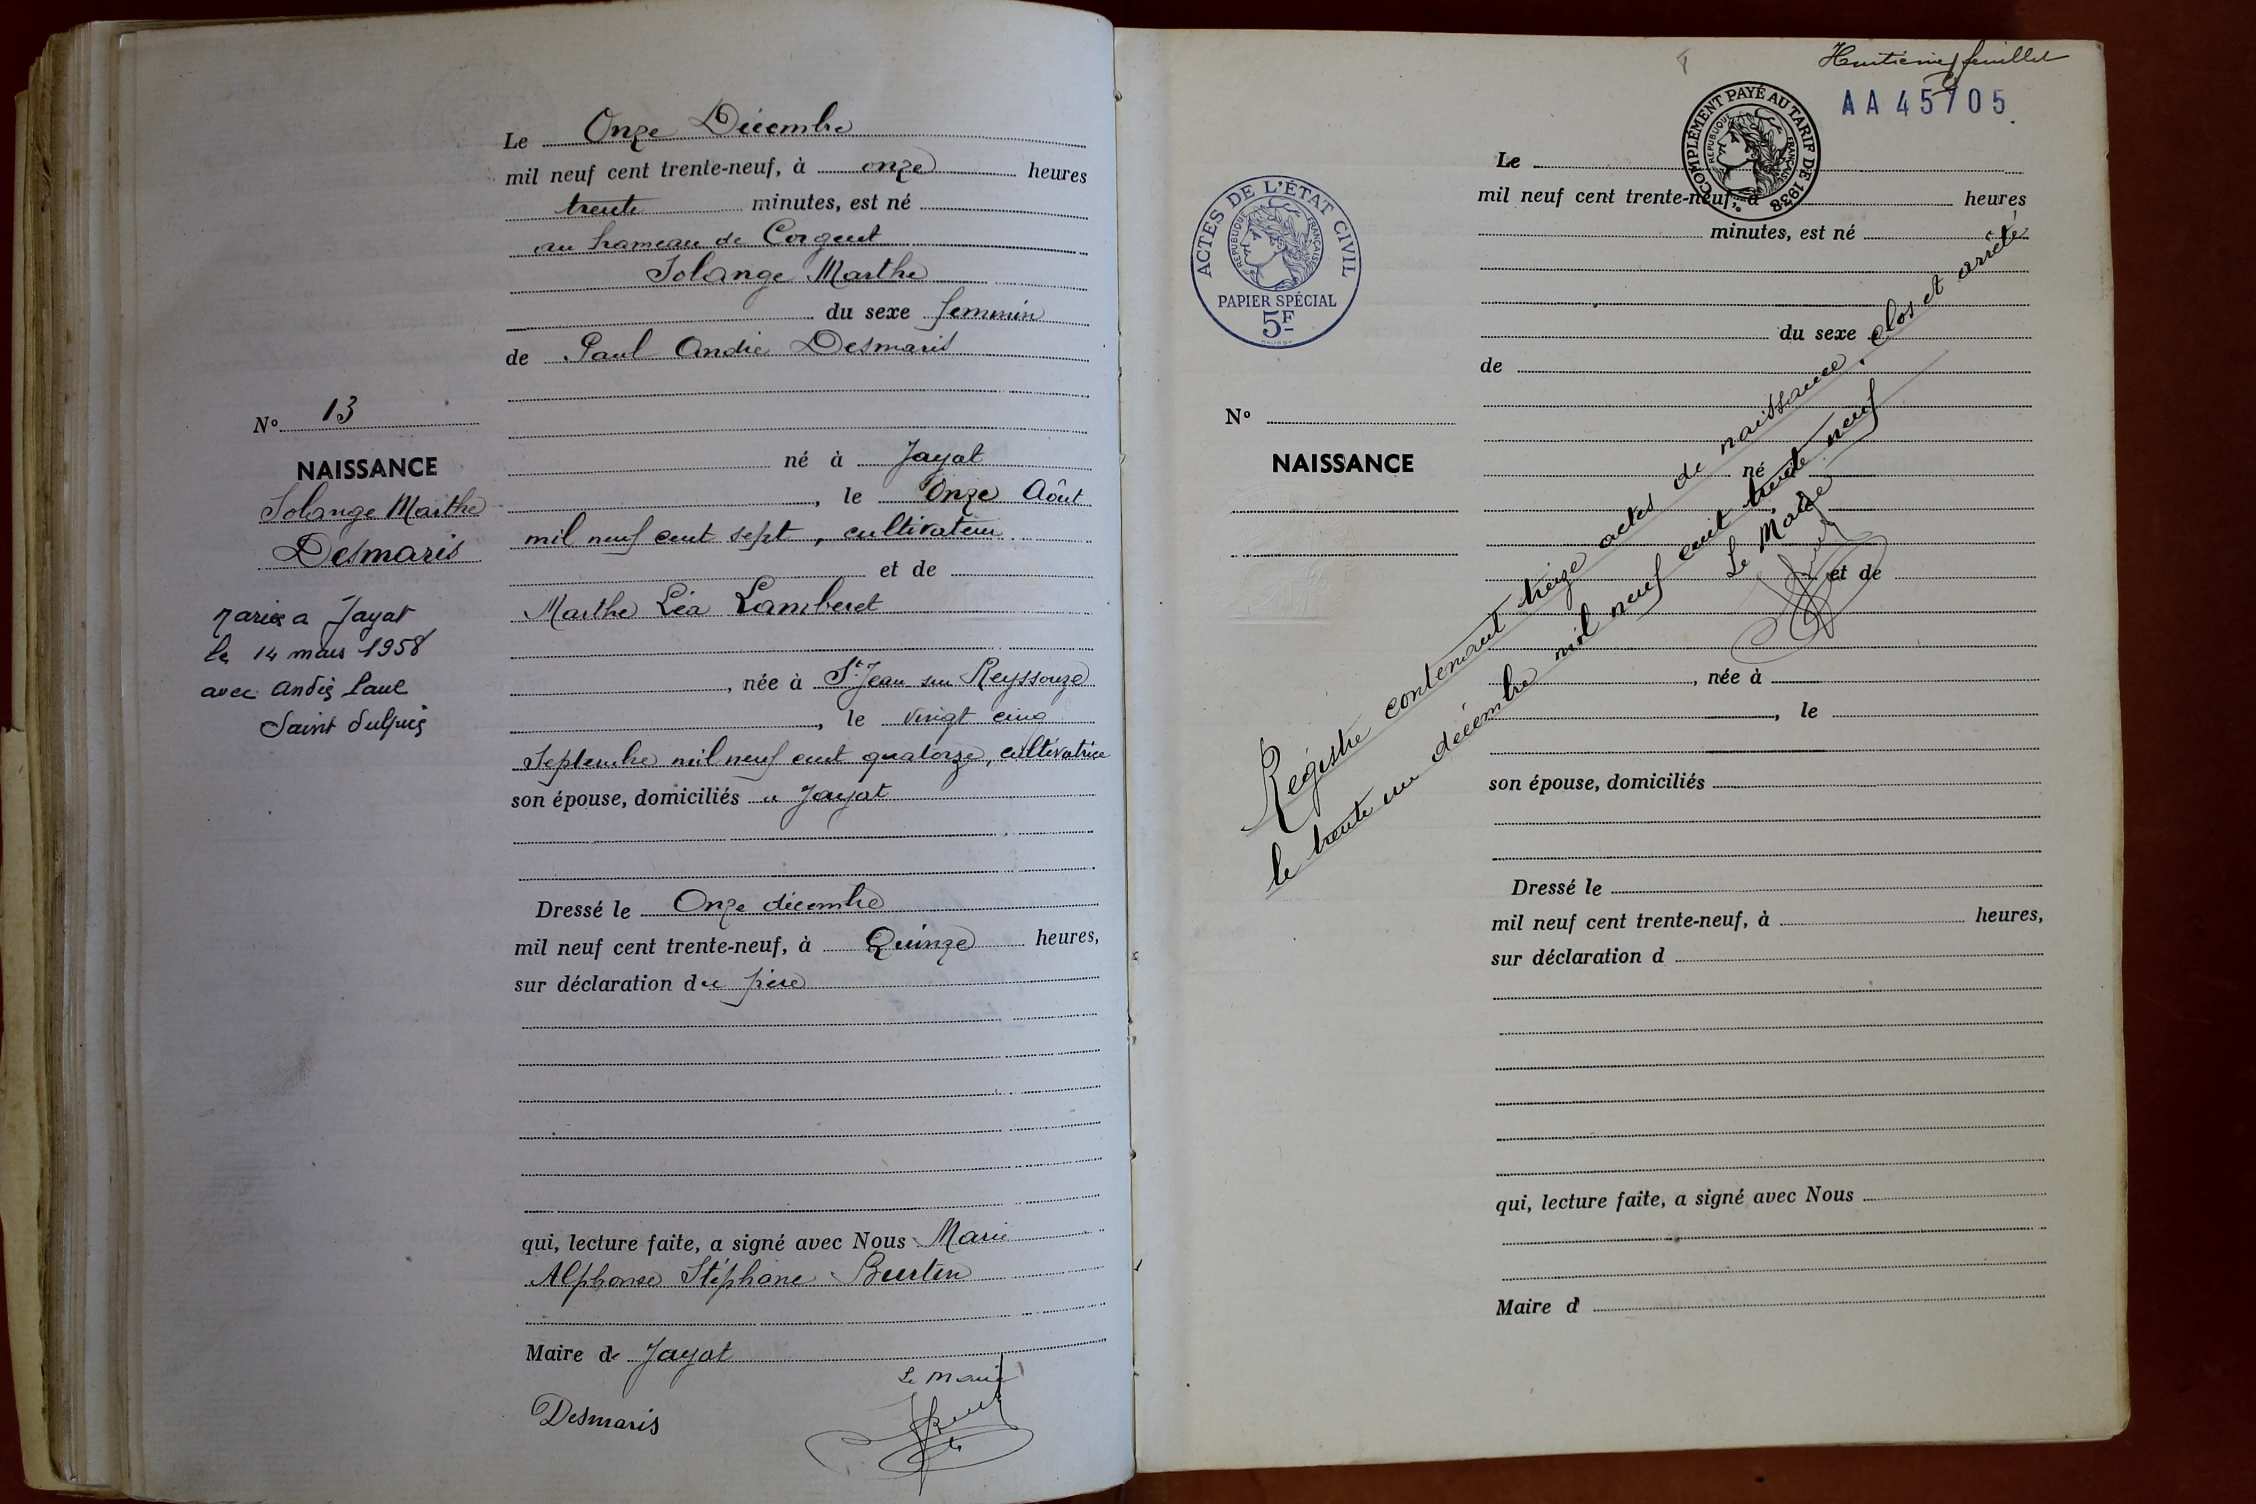 Le Onze Décembre
mil neuf cent trente-neuf, à onze heures
trente minutes, est né
au hameau de Corgent
Solange Marthe
du sexe féminin
de Paul André Desmaris
N° 13
né à Jayat
NAISSANCE
, le Onze Août
Solange Marthe
Desmaris
mil neuf cent sept, cultivateur
et de
Marthe Léa Lamberet
Mariée a Jayat
le 14 mars 1958
avec André Paul
Saint Sulpice
, née à St Jean sur Reyssouze
, le vingt cinq
Septembre mil neuf cent quatorze, cultivatrice
son épouse, domiciliés à Jayat
Dressé le Onze décembre
mil neuf cent trente-neuf, à Quinze heures,
sur déclaration du père
qui, lecture faite, a signé avec Nous Marie
Alphonse Stéphane Burtin
Maire de Jayat
Le Maire
Desmaris
Huitième feuillet
AA 45705
COMPLÉMENT PAYÉ AU TARIF DE 1938
REPUBLIQUE FRANÇAISE
ACTES DE L'ÉTAT CIVIL
REPUBLIQUE FRANÇAISE
PAPIER SPÉCIAL
5F
Le
mil neuf cent trente-neuf, à heures
minutes, est né
du sexe
de
N°
NAISSANCE
né
et de
, née à
, le
son épouse, domiciliés
Dressé le
mil neuf cent trente-neuf, à heures,
sur déclaration d
qui, lecture faite, a signé avec Nous
Maire d
Registre contenant treize actes de naissance, clos et arrêté
le trente un décembre mil neuf cent trente neuf
Le Maire